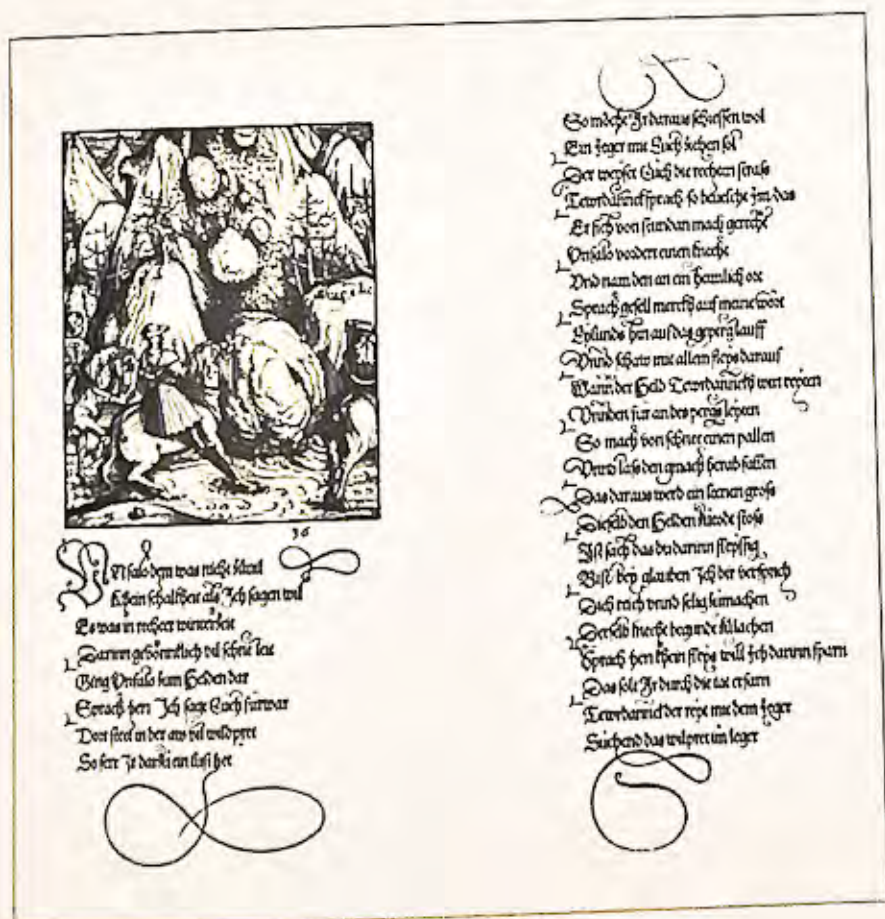 36
Vnfalo dem was nicht zuuil
Khein schalkheit als Ich sagen wil
Es was in rechter winterzeit
Darinn gewönntlich vil schnee leit
Gieng Vnfalo zum Helden dar
Sprach herr Ich sage Euch fürwar
Dort steet in der aw vil wildpret
So ferr Ir darzu ein lust het
So möcht Ir daraus schiessen wol
Ein Jeger mit Euch ziehen sol
Der weyst Euch die rechten strass
Tewrdannck sprach so beuelcht Im das
Er sich von stundan mach gerecht
Vnfalo vordert einen knecht
Vnd nam den an ein heimlich ort
Sprach gesell merckh auf meine wort
Eylunds hin auf das gepirg lauff
Vnnd schaw mit allem fleys darauf
Wann der Held Tewrdannckh wirt reyten
Vnnden für an des pergs leyten
So mach von schnee einen pallen
Vnnd lass den gmach herab fallen
Das daraus werd ein leenen gross
Dieselb den Helden zutode stoss
Ist sach das du darinn fleyssig
Bist bey glauben Ich der versprich
Dich reich vnnd selig zumachen
Derselb knecht begundt zulachen
Sprach herr khein fleys will Ich darinn sparn
Das solt Ir durch die tat erfarn
Tewrdannck der reyt mit dem Jeger
Suchend das wilpret im leger